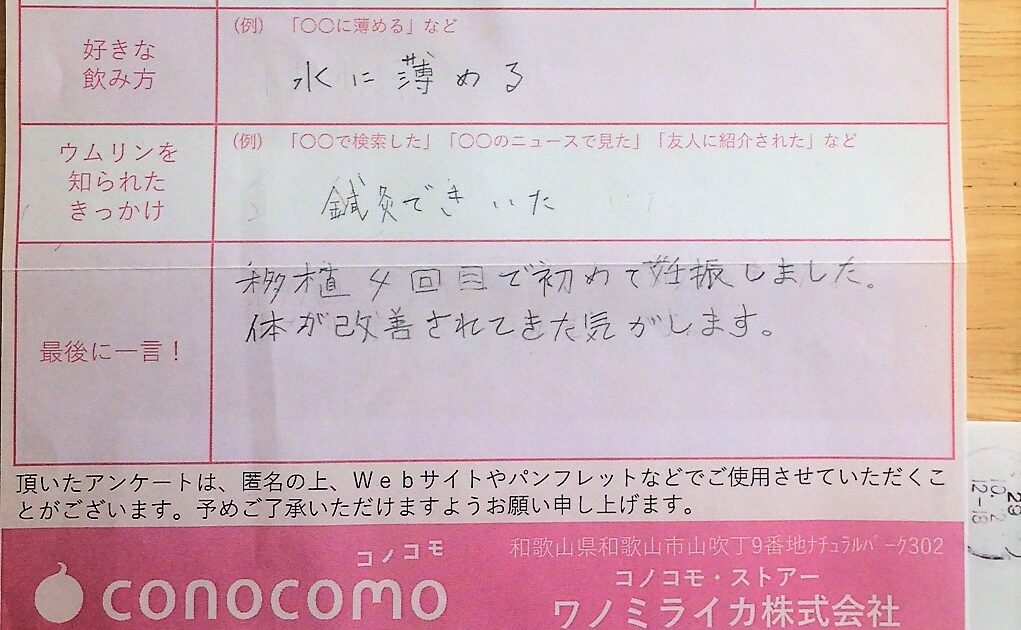 (例) 「〇〇に薄める」など
好きな
飲み方
水に薄める
(例) 「〇〇で検索した」「〇〇のニュースで見た」「友人に紹介された」など
ウムリンを
知られた
きっかけ
鍼灸できいた
移植4回目で初めて妊振しました。
体が改善されてきた気がします。
最後に一言！
頂いたアンケートは、匿名の上、Ｗｅｂサイトやパンフレットなどでご使用させていただくこ
とがございます。予めご了承いただけますようお願い申し上げます。
コノコモ
conocomo
和歌山県和歌山市山吹丁9番地ﾅﾁｭﾗﾙﾊﾟｰｸ302
コノコモ・ストアー
ワノミライカ株式会社
29
10.2
12-18